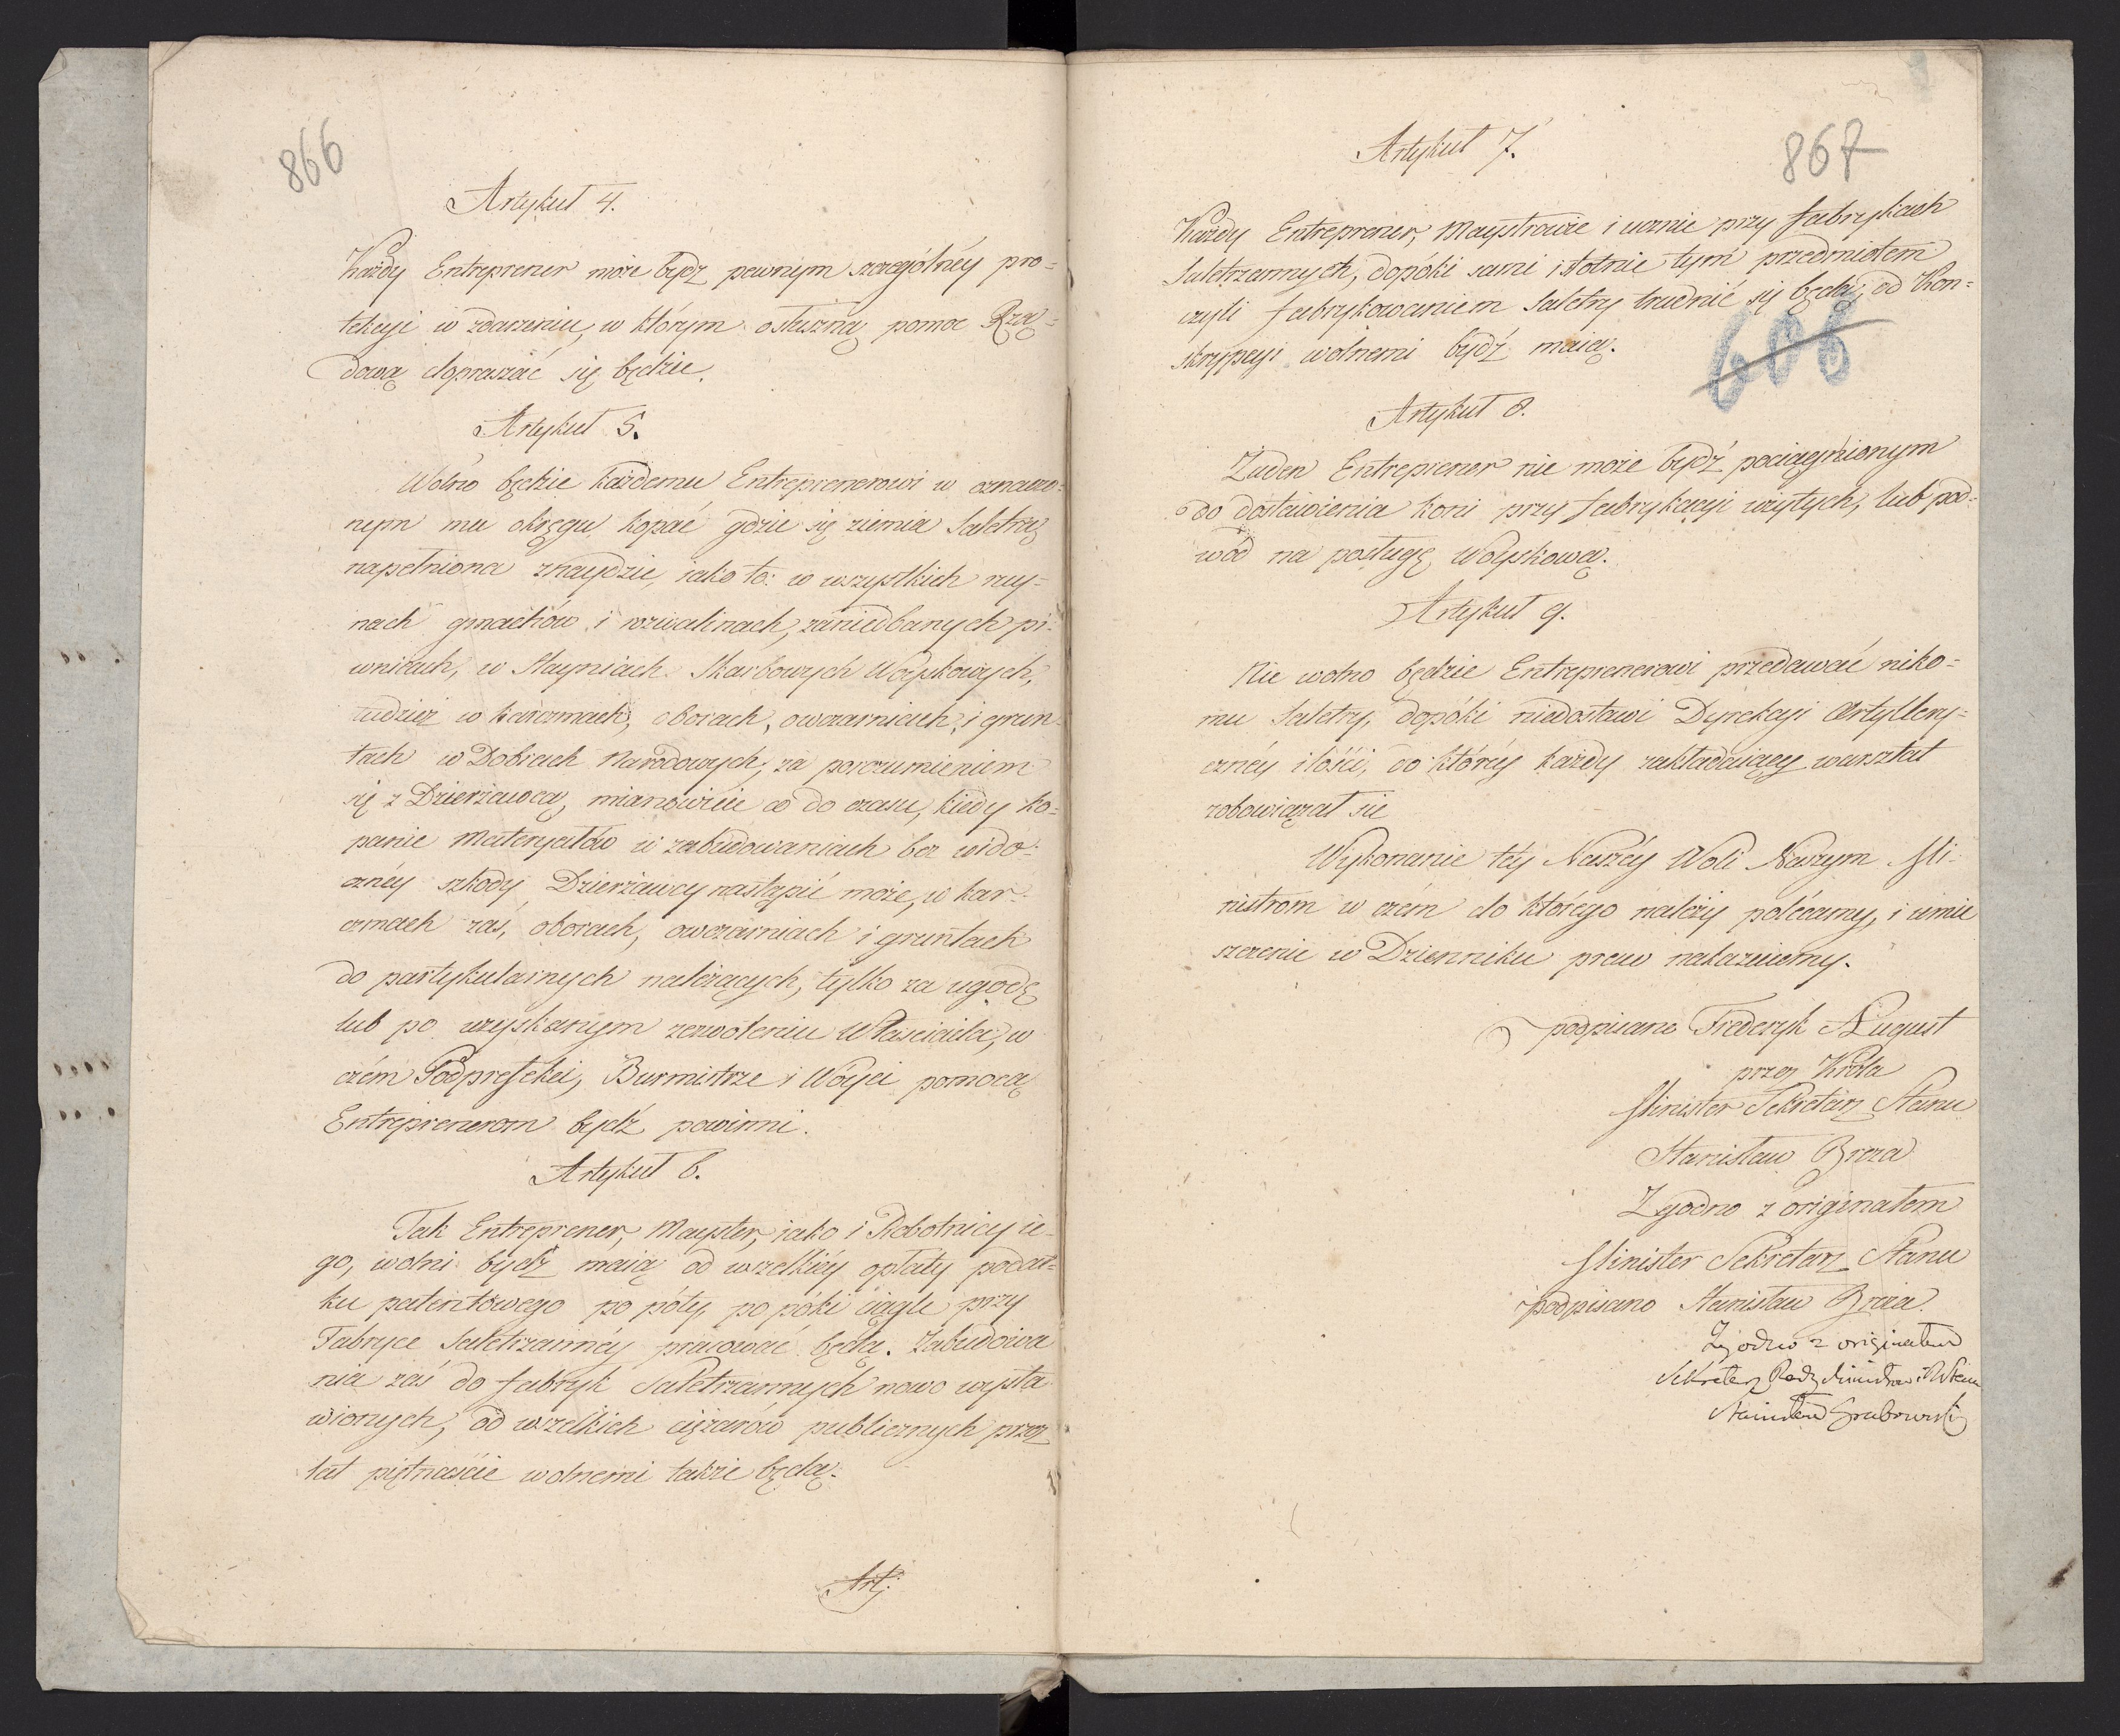 866
Artykuł 4.
Każdy Entreprener może bydź pewnym szczególnéy pro=
tekcyi w zdarzeniu, w którym o słuszną pomoc Rzą=
dową dopraszać się będzie.
Artykuł 5.
Wolno będzie każdemu Entreprenerowi w oznaczo=
nym mu okręgu kopać gdzie się ziemia Saletrą
napełniona znaydzie, iako to: w wszystkich ruy=
nach gmachów i rozwalinach, zaniedbanych pi=
wnicach, w Stayniach Skarbowych Woyskowych,
tudzież w karczmach, oborach, owczarniach, i grun=
tach w Dobrach Narodowych, za porozumieniem
się z Dzierżawcą, mianowicie co do czasu, kiedy ko=
panie Materyałów w zabudowaniach bez wido=
cznéy szkody Dzierżawcy nastąpić może, w kar=
czmach zaś, oborach, owczarniach i gruntach
do partykularnych należących, tylko za ugodą
lub po uzyskanym zezwoleniu Właściciela, w
czém Podprefekci, Burmistrze i Wóyci pomocą
Entreprenerom bydź powinni.
Artykuł 6.
Tak Entreprener, Mayster, iako i Robotnicy ie=
go, wolni bydź maią od wszelkiéy opłaty podat=
ku patentowego po póty, po póki ciągle przy
Fabryce Saletrzannéy pracować będą. Zabudowa
nia zaś do fabryk Saletrzannych nowo wysta
wionych, od wszelkich ciężarów publicznych przez
lat piętnaście wolnemi także będą.
Art:
867
Artykuł 7.
Każdy Entreprener, Maystrowie i ucznie przy fabrykach
Saletrzannych, dopóki sami istotnie tym przedmiotem
czyli fabrykowaniem Saletry trudnić się będą, od Kon=
skrypcyi wolnemi bydź maią.
606
Artykuł 8.
Żaden Entreprener nie może bydź pociągnionym
do dostawienia koni przy fabrykacyi użytych, lub pod=
wód na posługę Woyskową.
Artykuł 9.
Nie wolno będzie Entreprenerowi przedawać niko=
mu Saletry, dopóki niedostawi Dyrekcyi Artyllery=
cznéy ilości, do któréy każdy zakładaiący warsztat
zobowiązał sie
Wykonanie téy Naszéy Woli Naszym Mi=
nistrom w czém do którego należy polécamy, i umie
szczenie w Dzienniku praw nakazuiemy.
podpisano Frederyk August
przez Króla
Minister Sekretarz Stanu
Stanisław Breza
Zgodno z originałem
Minister Sekretarz Stanu
podpisano Stanisław Breza.
Zgodno z originałem
Sekretarz Rady Ministrów i R Stanu
Stanisław Grabowski